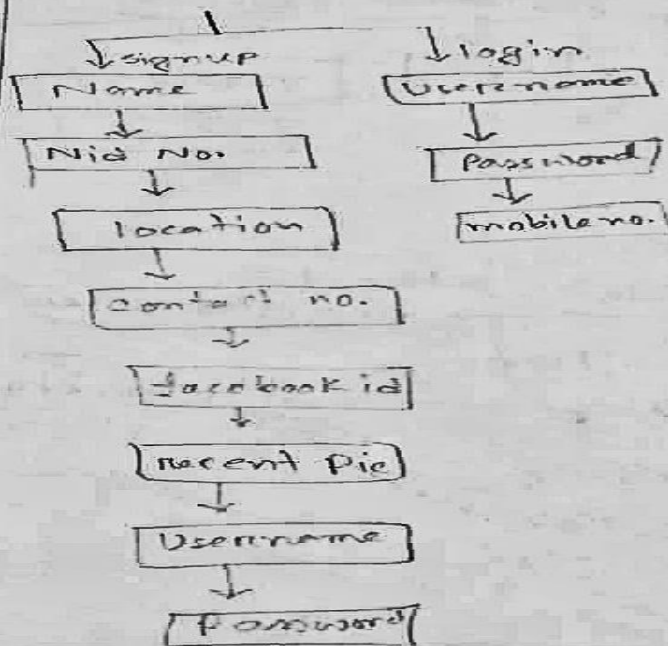 signup
Name
Nid No.
location
contact no.
facebook id
Recent Pic
Username
Password
login
Username
Password
mobile no.